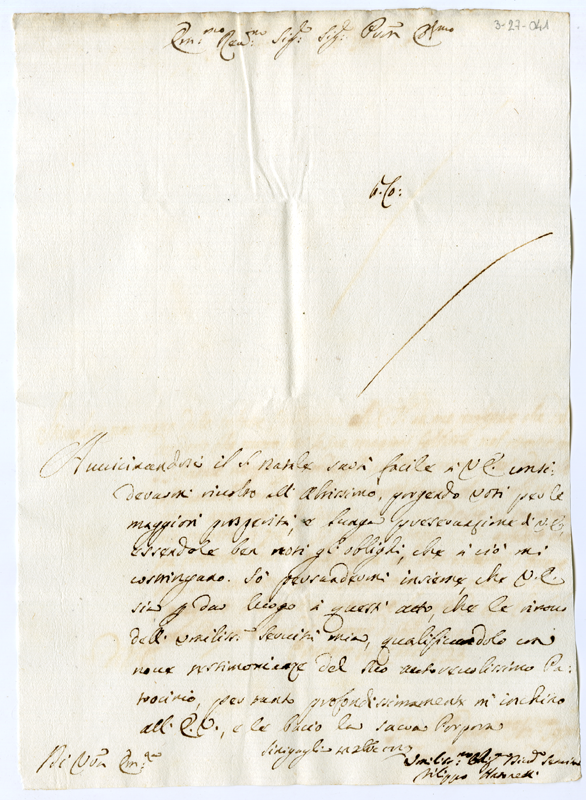 3-27-041
Em.mo Rev.mo Sig.r Sig.r Pron Col.mo
Avvicinandosi il S. Natale sarà facile à V.E. consi-
derarmi rivolto all'Altissimo, porgendo voti per le
maggiori prosperità, e lunga preservazione di V.E.,
essendole ben noti gli oblighi, che à ciò mi
costringano. Sò persuadermi insieme, che V.E.
sia p dar luogo à questo atto, che le rinova
dell'umiliss.a servitù mia, qualificandolo con
nove testimonianze del suo autorevolissimo Pa-
trocinio, per tanto profondissimamente m'inchino
all'E.V., e le bacio la sacra Porpora
Sinigaglia
Di Vra Em.za
Umiliss.mo
Filippo